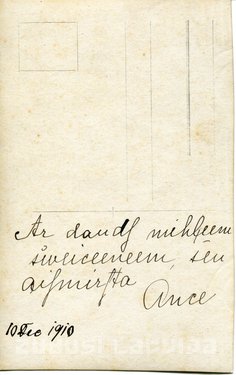 Ar daudſ mihļeem
sweiceeneem, sen
aiſmirſta
Ance
10 Dec 1910